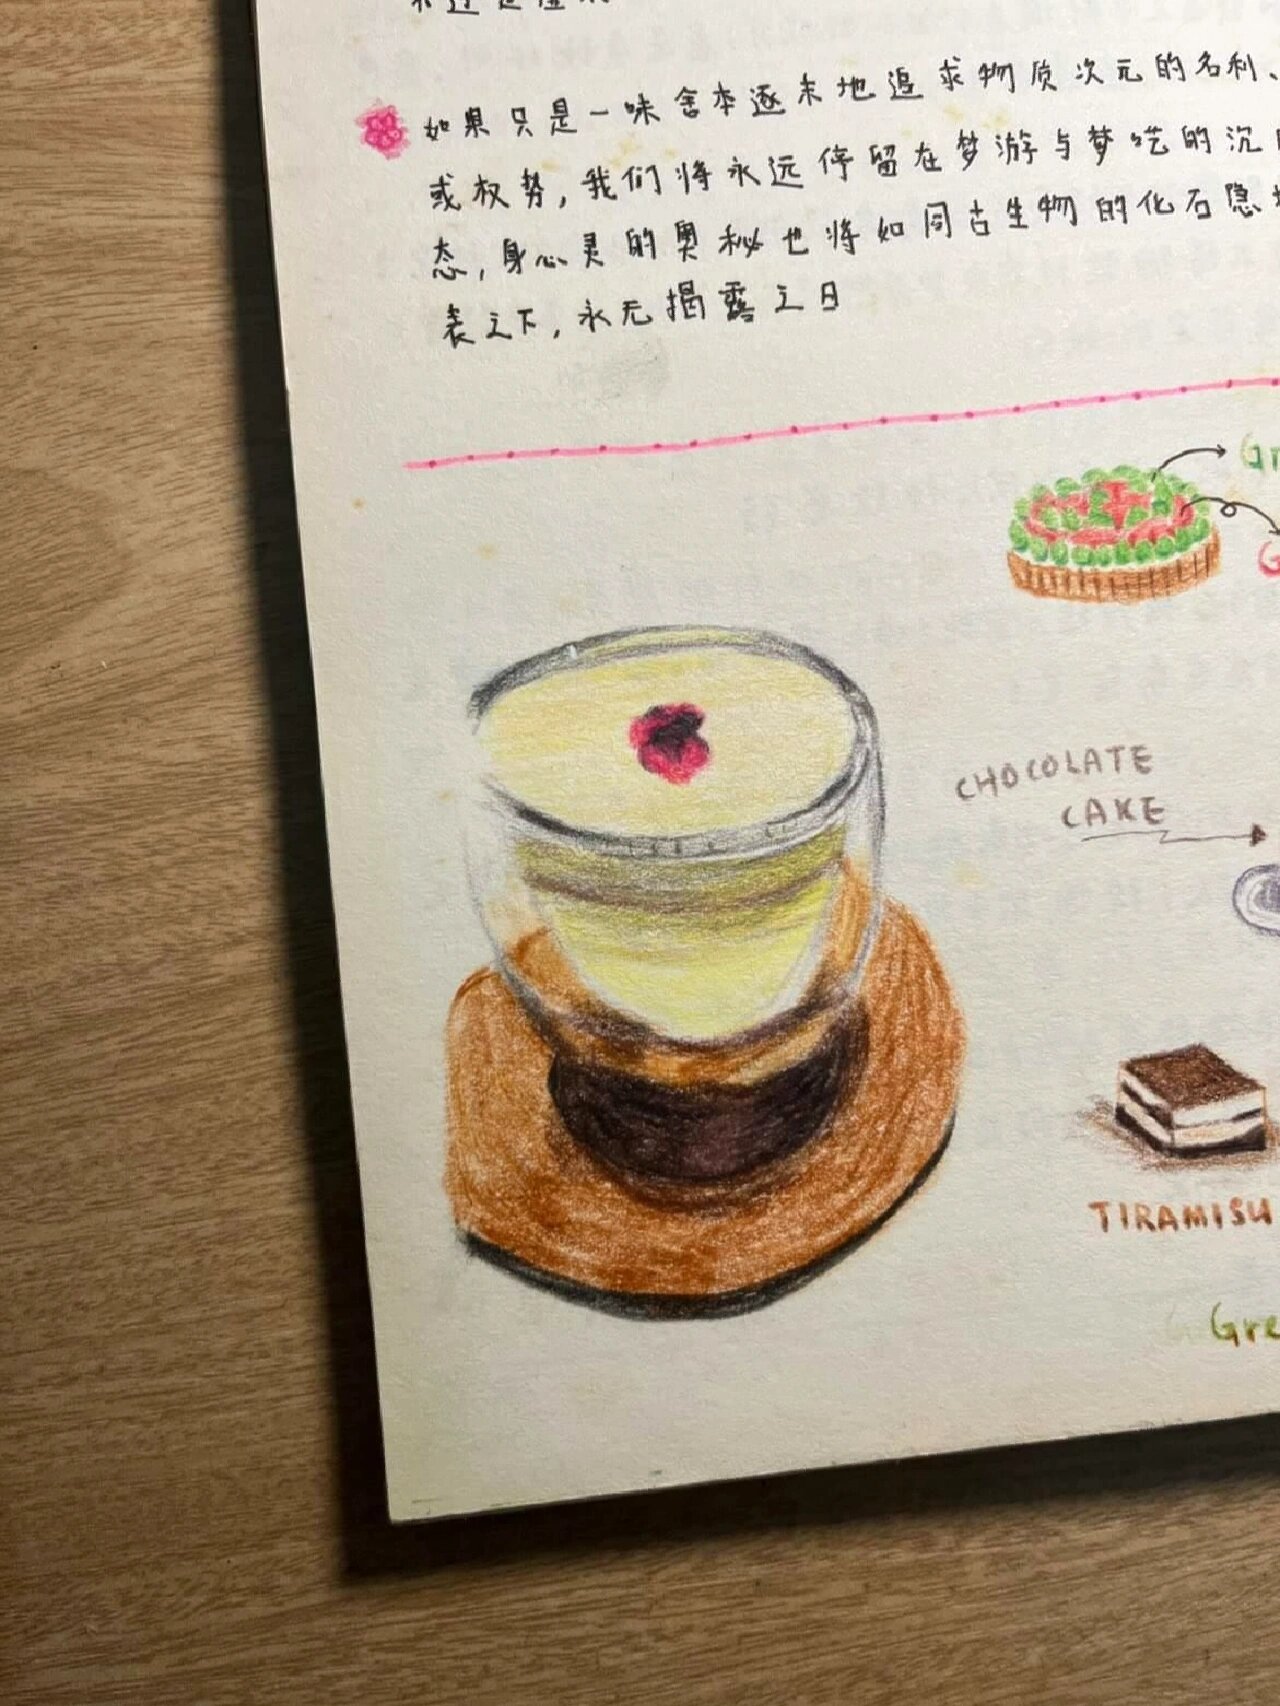 如果只是一味舍本逐末地追求物质次元的名利、
或权势,我们将永远停留在梦游与梦呓的沉
态,身心灵的奥秘也将如同古生物的化石隐
表之下,永无揭露之日
Gr
G
CHOCOLATE
CAKE
TIRAMISU
Gre